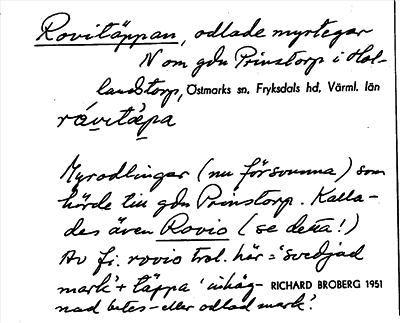 Rovitäppan, odlade myrtegar
N om gdn Prinstorp i Hol-
landstorp, Östmarks sn. Fryksdals hd, Värml. län
rǻvitä̀pa
Myrodlingar (nu försvunna) som
hörde till gdn Prinstorp. Kalla-
des även Rovio (se detta!)
Av fi. rovio trol. här = 'svedjad
mark' + täppa 'inhäg- RICHARD BROBERG 1951
nad betes- eller odlad mark'.